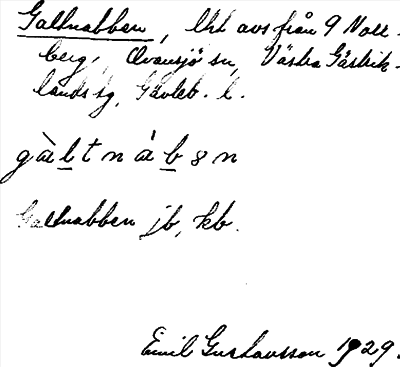 Galtnabben, lht avs från 9 Norr-
berg, Ovansjö sn, Västra Gästrik-
lands tg, Gävleb. l.
gàltnáb8n
Galtnabben jb, kb.
Emil Gustavsson 1929.